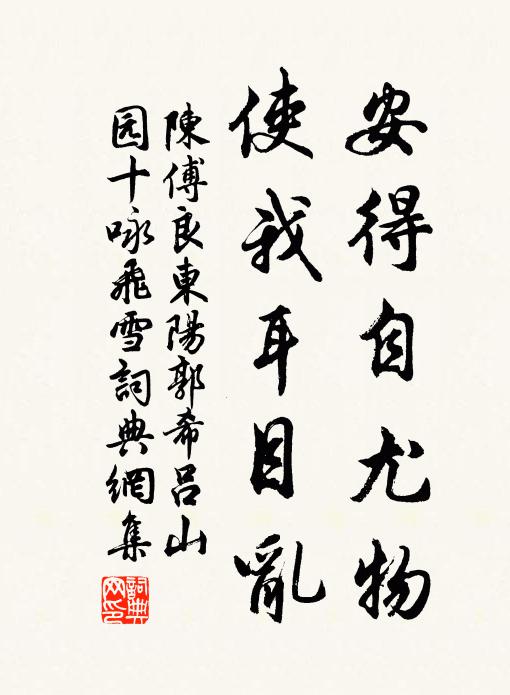 安得自尤物
使我耳目亂
陳傅良東陽郭希呂山
园十咏飛雪詞典網集
詞典網印